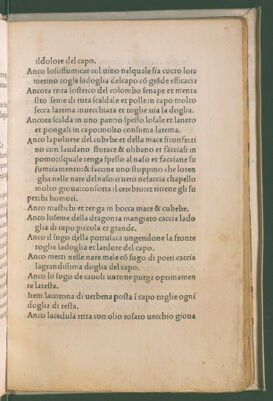 ildolore del capo.
Anco losoffumicar col uino nelquale sia cocto lora
merino togle ladoglia delcapo cõ grãde efficacia
Ancora trita losterco del colombo senape et menta
stro seme di ruta scaldale et polle in capo molto
secca larema inuecchiata et togle uia la doglia.
Ancora scalda in uno panno spesso losale et laneto
et pongali in capo: molto consuma larema.
Anco la poluere del cubebe et della mace sconfecti
no con laudano storace & olibano et facciasi in
pomo: ilquale tenga spesso al naso et facciane su
fumicamento: & facone uno stoppino che loten
gha nelle nare del naso: o uero nelaccia chappello
molto gioua: conforta il cerebro: et ritiene gli su
perchi homori.
Anco mastichi et tenga in bocca mace & cubebe.
Anco loseme della dragontea mangiato caccia lado
glia di capo piccola et grande.
Anco il sugo della portulaca ungendone la fronte
toglie ladoglia et lardore del capo.
Anco metti nelle nare mele cõ sugo di porri caccia
lagrandissima doglia del capo.
Anco lo sugo de cauoli con tuone purga optimamen
te latesta.
Item lacorona di uerbena posta ĩ capo toglie ogni
doglia di testa.
Anco lacedula trita con olio rosato uecchio gioua